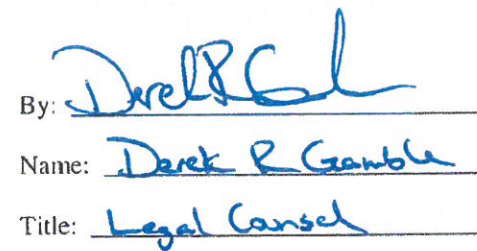 By: Derek R Gamble
Name: Derek R Gamble
Title: Legal Counsel